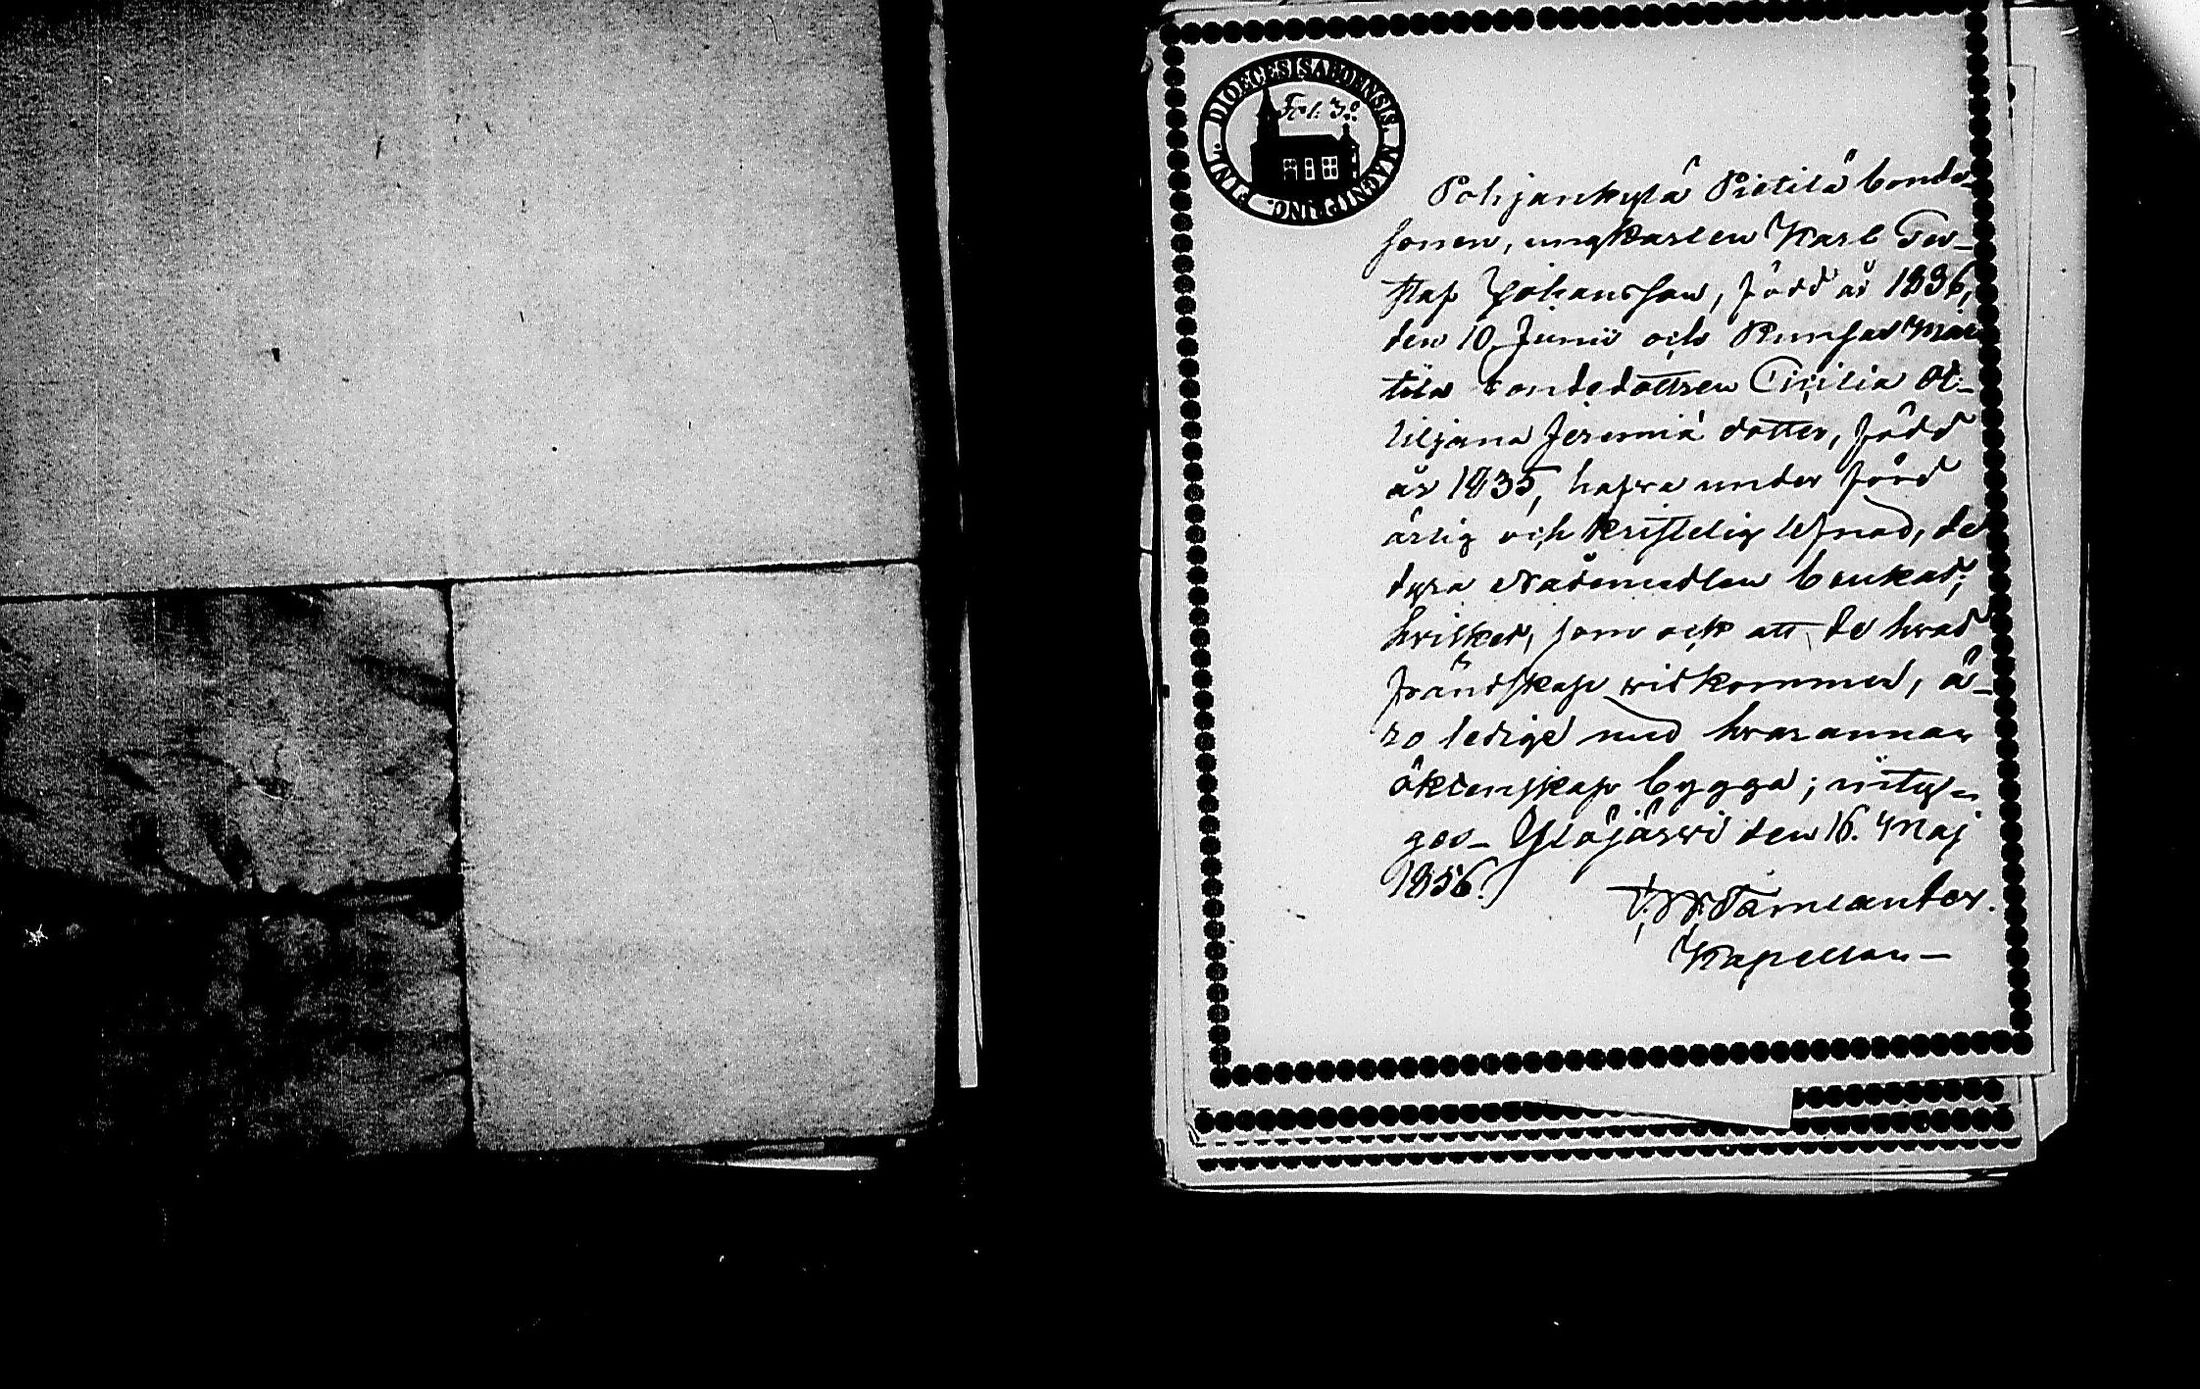 DIOECESIS ABOENSIS. MAGNI PRINC. FINL.
Fol. 3
Pohjankylä Pietilä bonde-
sonen, ungkarlen Karl Gu-
staf Johansson, född år 1836,
den 10 Junii och Runsas Mat-
tila bondedottren Cicilia Ot-
tiljana Jeremiä dotter, född
år 1835, hafva under förd
ärlig och kristelig lefnad, de
dyra Nådemedlen brukat;
hvilket, som ock att de hvad
frändskap vidkommer, ä-
ro ledige med hvarannan
äktenskap bygga; intyg-
gas_ Ylöjärvi den 16. Maj
1856.
Tamlander.
Kapellan_